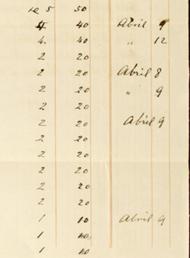 5 50
4 40 Abril 9
4 40 " 12
2 20
2 20 Abril 8
2 20 " 9
2 20
2 20 Abril 9
2 20
2 20
2 20
2 20
2 20
1 10 Abril 9
1 10
1 10